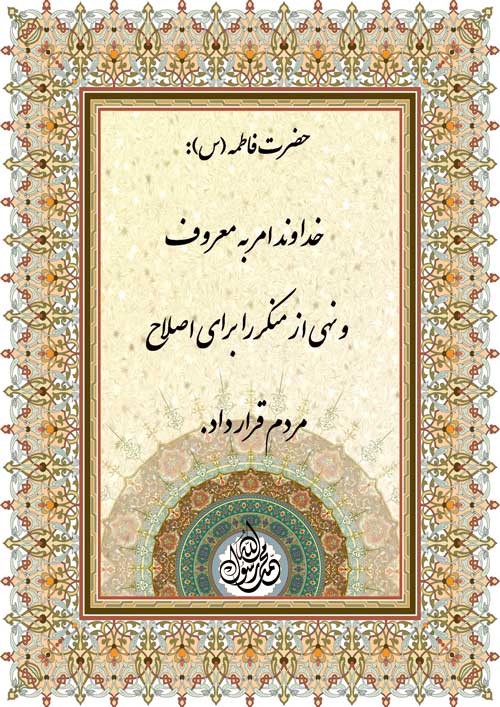 حضرت فاطمه (س):
خداوند امر به معروف
و نهی از منکر را برای اصلاح
مردم قرار داد.
محمد رسول الله